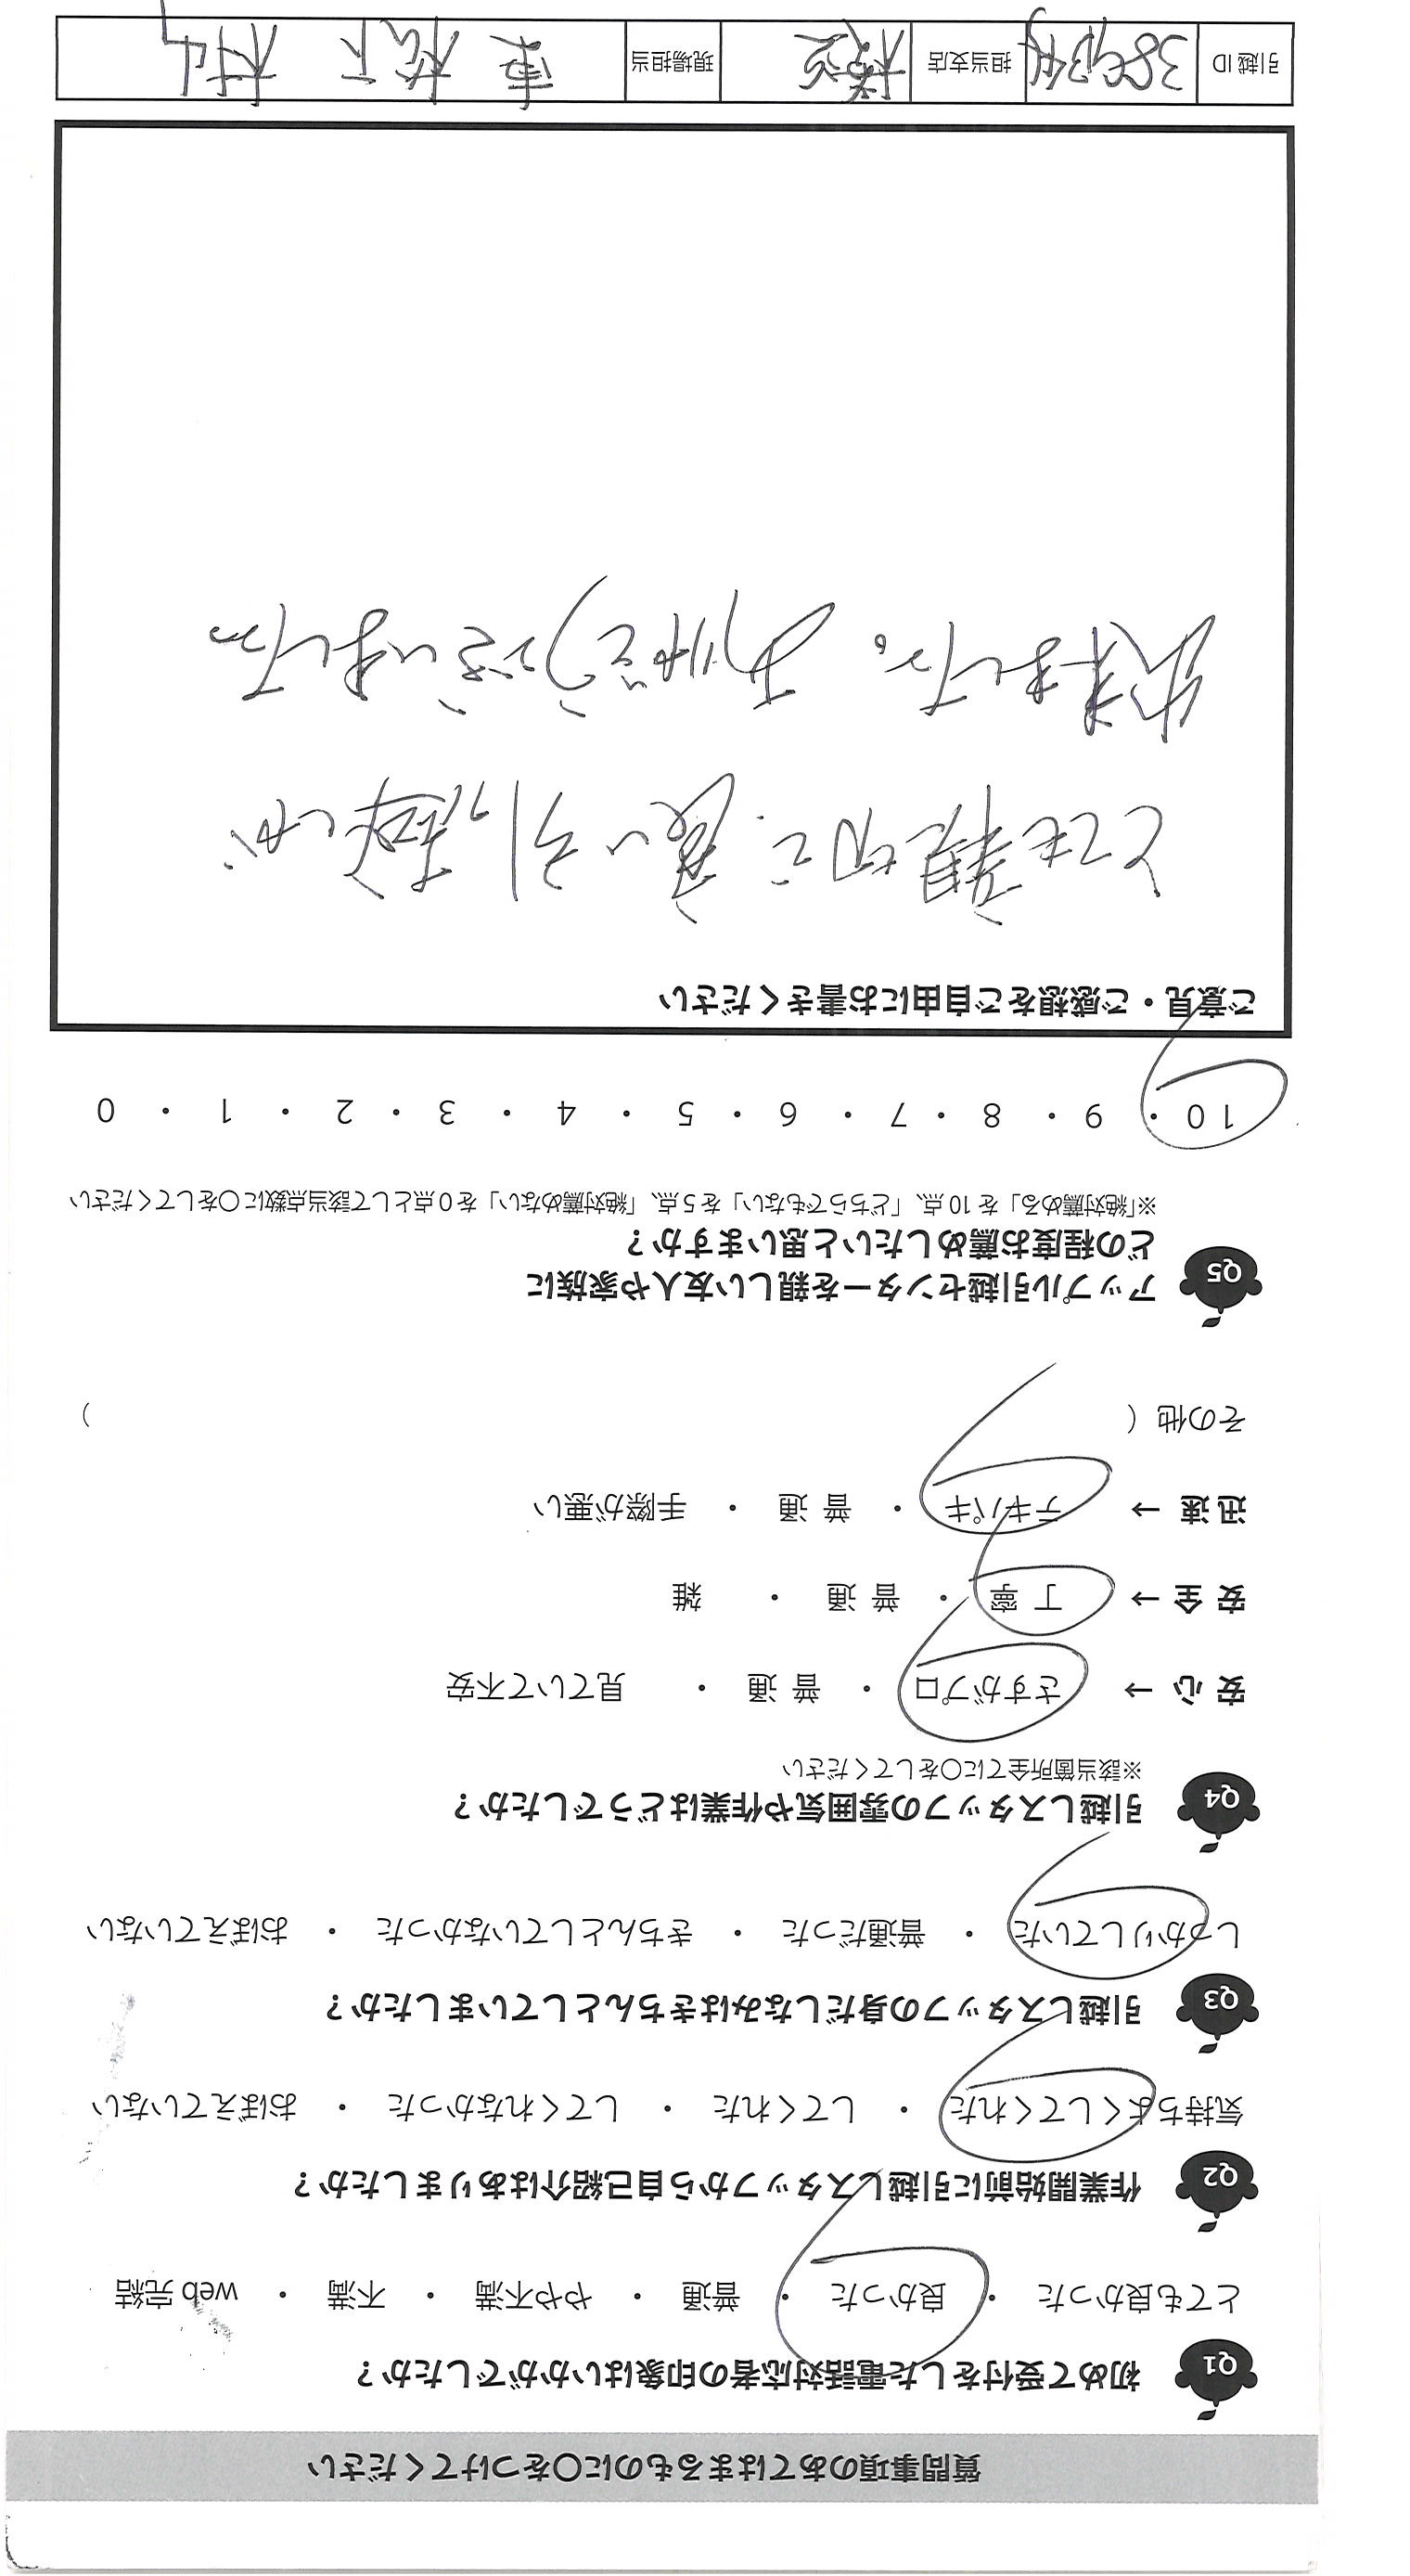 質問事項のあてはまるものに〇をつけてください
Q1 初めて受付をした電話対応者の印象はいかがでしたか？
とても良かった ・ 良かった ・ 普通 ・ やや不満 ・ 不満 ・ web 完結
Q2 作業開始前に引越しスタッフから自己紹介はありましたか？
気持ちよくしてくれた ・ してくれた ・ してくれなかった ・ おぼえていない
Q3 引越しスタッフの身だしなみはきちんとしていましたか？
しっかりしていた ・ 普通だった ・ きちんとしていなかった ・ おぼえていない
Q4 引越しスタッフの雰囲気や作業はどうでしたか？
※該当箇所全てに〇をしてください
安 心 → さすがプロ ・ 普 通 ・ 見ていて不安
安 全 → 丁 寧 ・ 普 通 ・ 雑
迅 速 → テキパキ ・ 普 通 ・ 手際が悪い
その他（ ）
Q5 アップル引越センターを親しい友人や家族に
どの程度お薦めしたいと思いますか？
※「絶対薦める」を 10 点、「どちらでもない」を 5 点、「絶対薦めない」を 0 点として該当点数に〇をしてください
10 ・ 9 ・ 8 ・ 7 ・ 6 ・ 5 ・ 4 ・ 3 ・ 2 ・ 1 ・ 0
ご意見・ご感想をご自由にお書きください
とても親切で、良い引越しが
出来ました。ありがとうございました
引越 ID 担当支店 現場担当 東 松下 村山